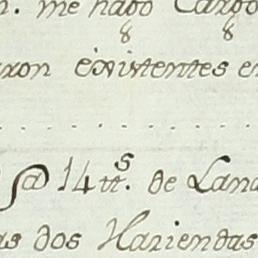 me hago Cargo
8 8
existentes en
@ 14 tt.s de Lana
dos Haziendas